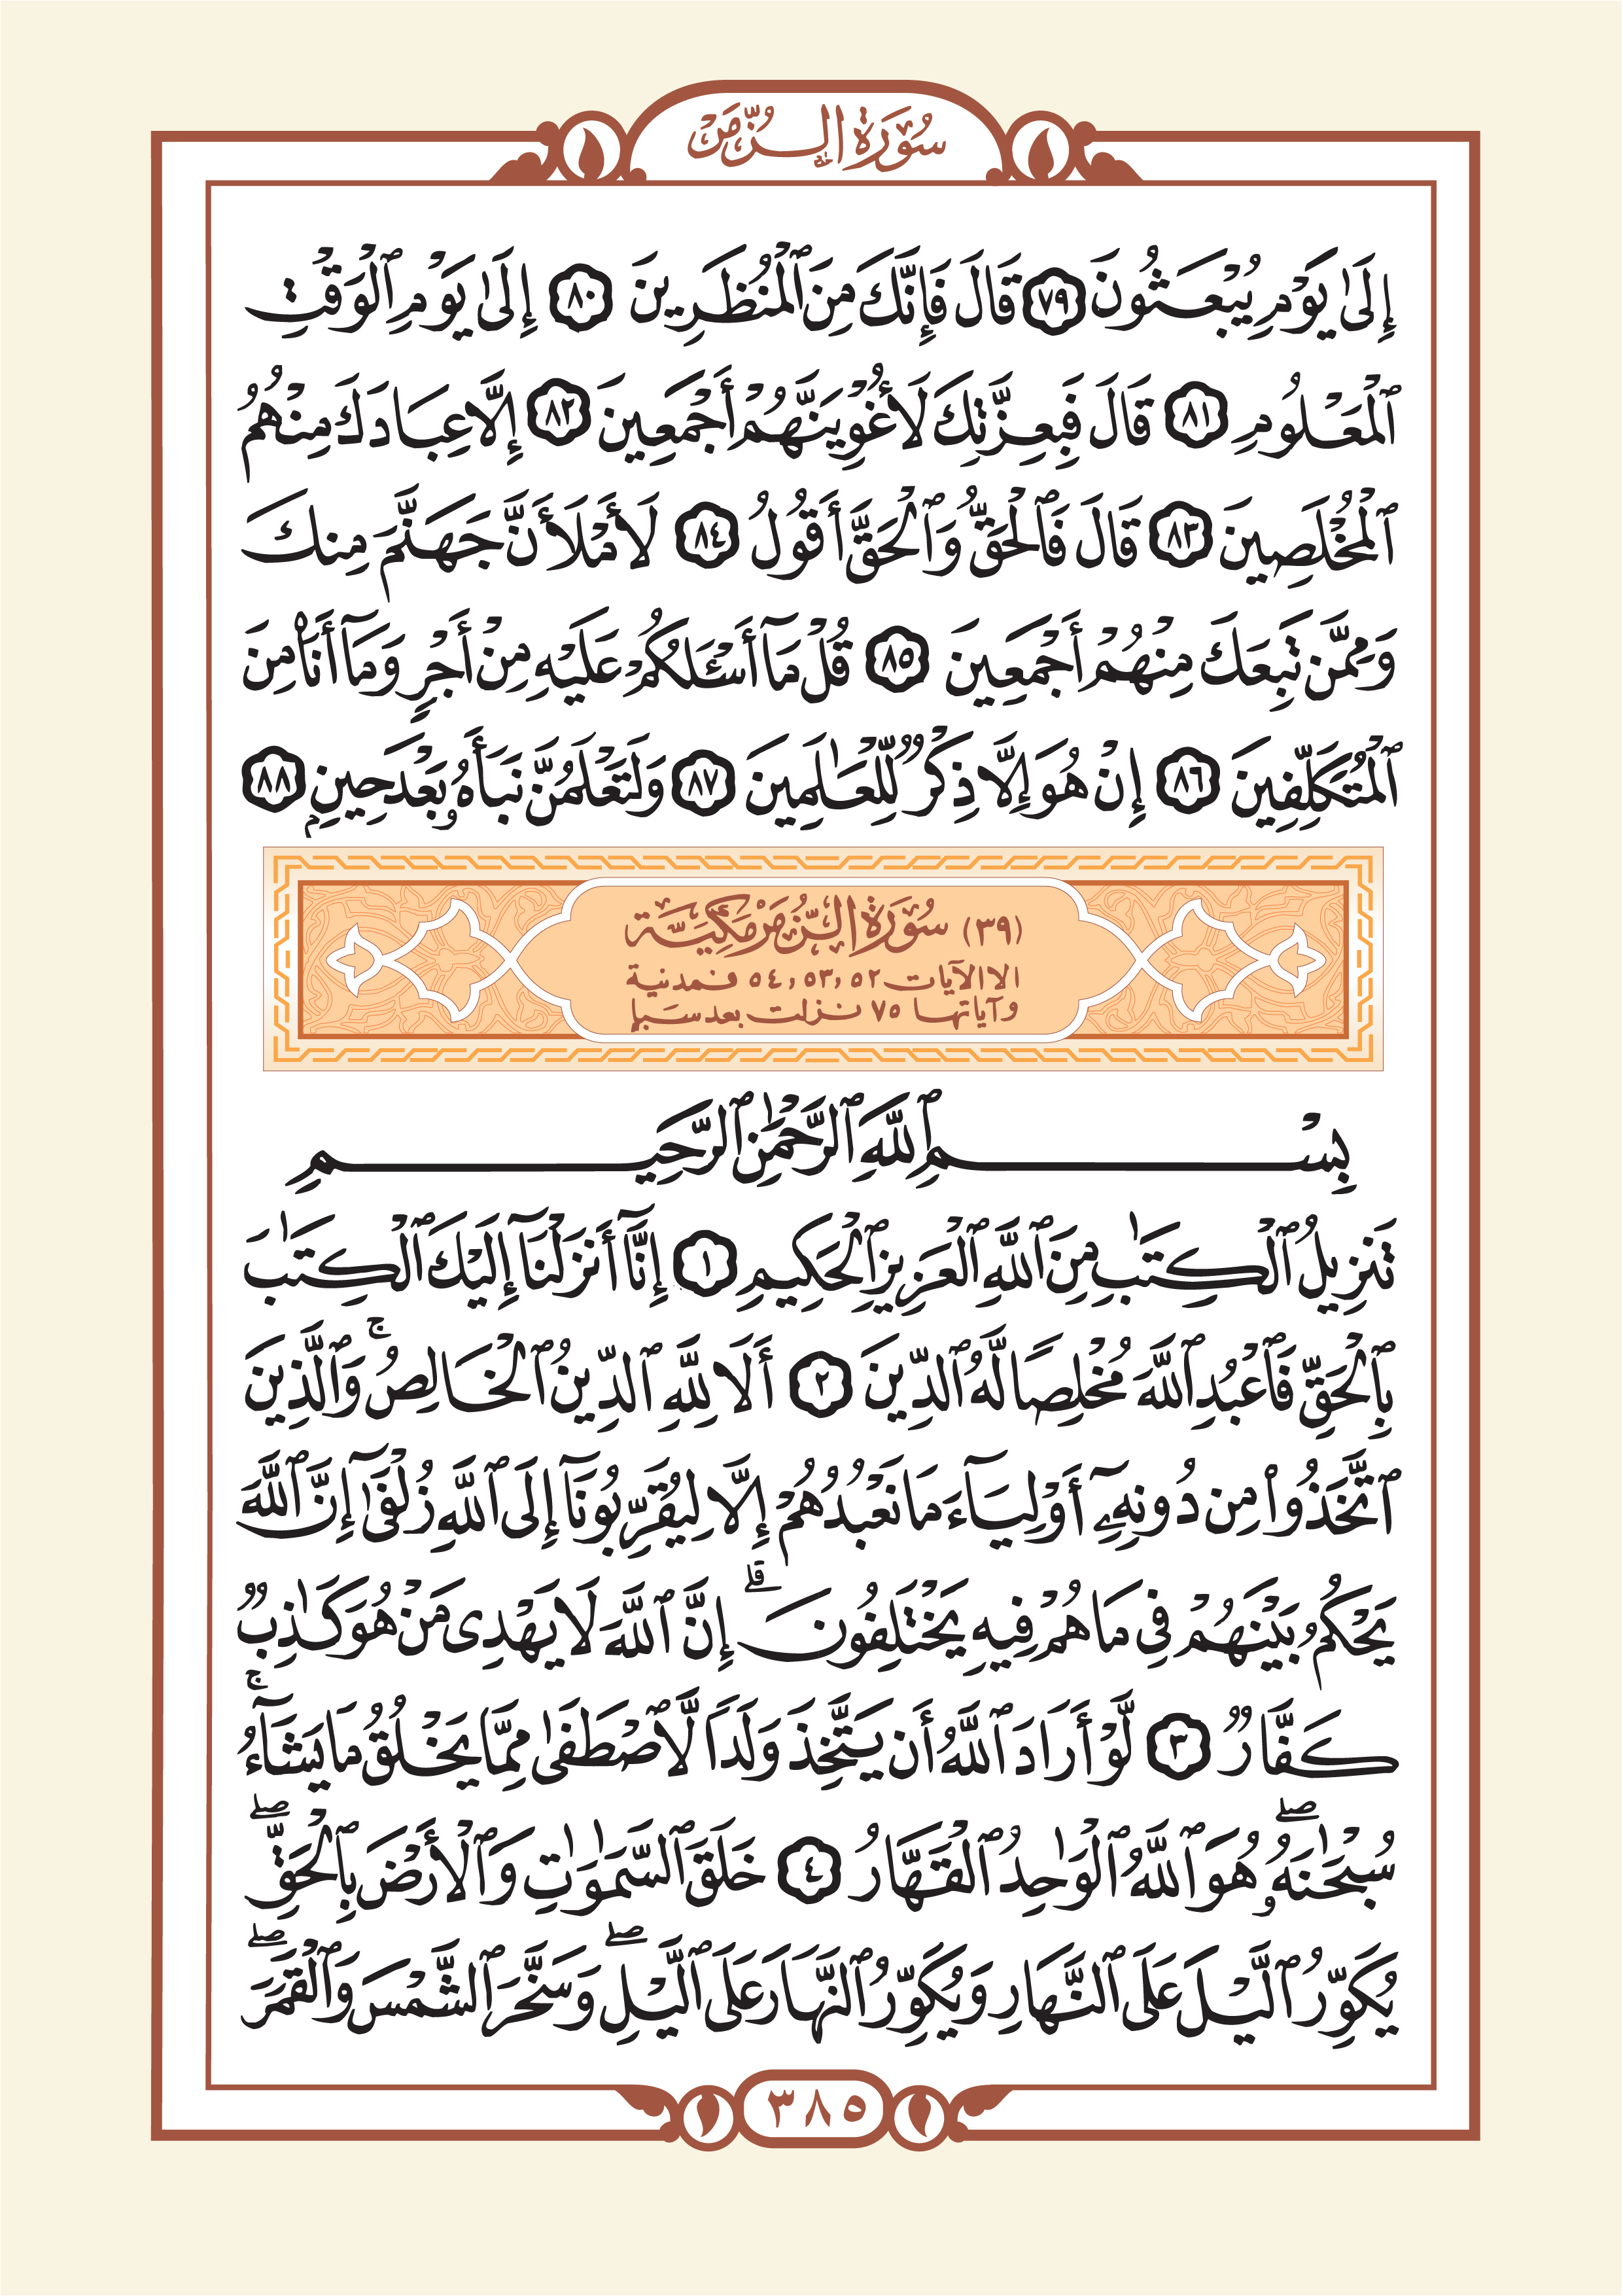 سُورَةُ الزُّمَر
إِلَىٰ يَوْمِ يُبْعَثُونَ ٧٩ قَالَ فَإِنَّكَ مِنَ ٱلْمُنظَرِينَ ٨٠ إِلَىٰ يَوْمِ ٱلْوَقْتِ
ٱلْمَعْلُومِ ٨١ قَالَ فَبِعِزَّتِكَ لَأُغْوِيَنَّهُمْ أَجْمَعِينَ ٨٢ إِلَّا عِبَادَكَ مِنْهُمُ
ٱلْمُخْلَصِينَ ٨٣ قَالَ فَٱلْحَقُّ وَٱلْحَقَّ أَقُولُ ٨٤ لَأَمْلَأَنَّ جَهَنَّمَ مِنكَ
وَمِمَّن تَبِعَكَ مِنْهُمْ أَجْمَعِينَ ٨٥ قُلْ مَآ أَسْـَٔلُكُمْ عَلَيْهِ مِنْ أَجْرٍ وَمَآ أَنَا۠ مِنَ
ٱلْمُتَكَلِّفِينَ ٨٦ إِنْ هُوَ إِلَّا ذِكْرٌ لِّلْعَـٰلَمِينَ ٨٧ وَلَتَعْلَمُنَّ نَبَأَهُۥ بَعْدَ حِينِۭ ٨٨
(٣٩) سُورَةُ الزُّمَر مَكِّيَّة
الا الآيات ٥٢ ,٥٣ ,٥٤ فمدنية
وآياتها ٧٥ نزلت بعد سبإ
بِسْمِ ٱللَّهِ ٱلرَّحْمَـٰنِ ٱلرَّحِيمِ
تَنزِيلُ ٱلْكِتَـٰبِ مِنَ ٱللَّهِ ٱلْعَزِيزِ ٱلْحَكِيمِ ١ إِنَّآ أَنزَلْنَآ إِلَيْكَ ٱلْكِتَـٰبَ
بِٱلْحَقِّ فَٱعْبُدِ ٱللَّهَ مُخْلِصًا لَّهُ ٱلدِّينَ ٢ أَلَا لِلَّهِ ٱلدِّينُ ٱلْخَالِصُ ۚ وَٱلَّذِينَ
ٱتَّخَذُوا۟ مِن دُونِهِۦٓ أَوْلِيَآءَ مَا نَعْبُدُهُمْ إِلَّا لِيُقَرِّبُونَآ إِلَى ٱللَّهِ زُلْفَىٰٓ إِنَّ ٱللَّهَ
يَحْكُمُ بَيْنَهُمْ فِى مَا هُمْ فِيهِ يَخْتَلِفُونَ ۗ إِنَّ ٱللَّهَ لَا يَهْدِى مَنْ هُوَ كَـٰذِبٌ
كَفَّارٌ ٣ لَّوْ أَرَادَ ٱللَّهُ أَن يَتَّخِذَ وَلَدًا لَّٱصْطَفَىٰ مِمَّا يَخْلُقُ مَا يَشَآءُ ۚ
سُبْحَـٰنَهُۥ ۖ هُوَ ٱللَّهُ ٱلْوَٰحِدُ ٱلْقَهَّارُ ٤ خَلَقَ ٱلسَّمَـٰوَٰتِ وَٱلْأَرْضَ بِٱلْحَقِّ ۖ
يُكَوِّرُ ٱلَّيْلَ عَلَى ٱلنَّهَارِ وَيُكَوِّرُ ٱلنَّهَارَ عَلَى ٱلَّيْلِ ۖ وَسَخَّرَ ٱلشَّمْسَ وَٱلْقَمَرَ ۖ
٣٨٥